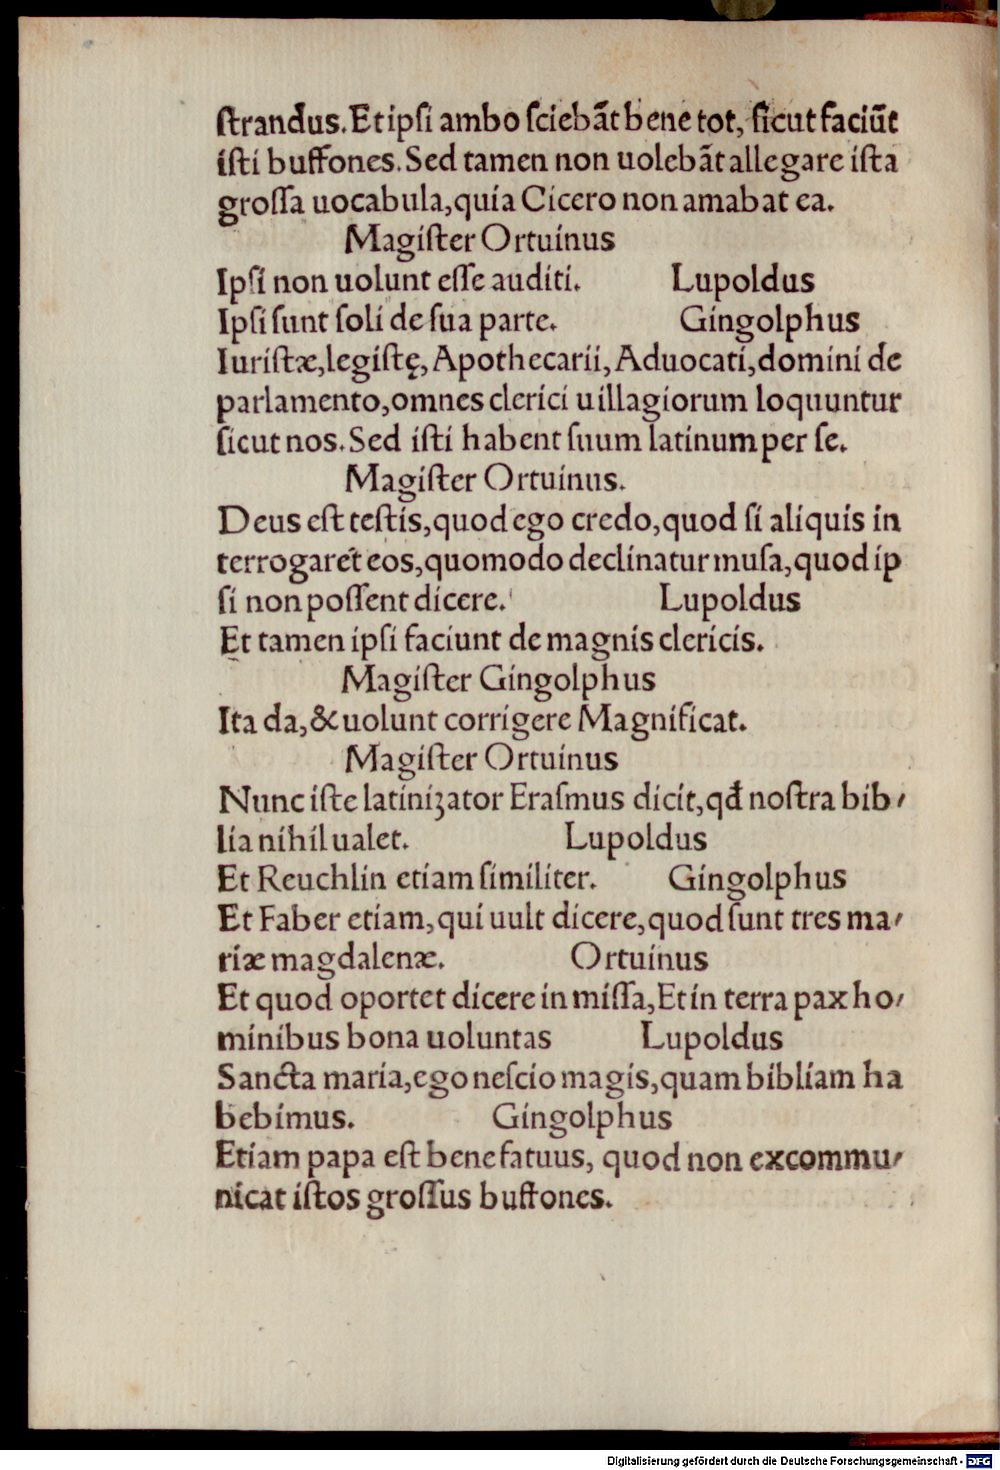 ſtrandus. Et ipſi ambo ſciebāt bene tot, ſicut faciūt
iſti buffones. Sed tamen non uolebāt allegare iſta
groſſa uocabula, quia Cicero non amabat ea.
Magiſter Ortuinus
Ipſi non uolunt eſſe auditi. Lupoldus
Ipſi ſunt ſoli de ſua parte. Gingolphus
Iuriſtæ, legiſtę, Apothecarii, Aduocati, domini de
parlamento, omnes clerici uillagiorum loquuntur
ſicut nos. Sed iſti habent ſuum latinum per ſe.
Magiſter Ortuinus.
Deus eſt teſtis, quod ego credo, quod ſi aliquis in
terrogarēt eos, quomodo declinatur muſa, quod ip
ſi non poſſent dicere. Lupoldus
Et tamen ipſi faciunt de magnis clericis.
Magiſter Gingolphus
Ita da, & uolunt corrigere Magnificat.
Magiſter Ortuinus
Nunc iſte latiniʒator Eraſmus dicit, qđ noſtra bib⸗
lia nihil ualet. Lupoldus
Et Reuchlin etiam ſimiliter. Gingolphus
Et Faber etiam, qui uult dicere, quod ſunt tres ma⸗
riæ magdalenæ. Ortuinus
Et quod oportet dicere in miſſa, Et in terra pax ho⸗
minibus bona uoluntas Lupoldus
Sancta maria, ego neſcio magis, quam bibliam ha
bebimus. Gingolphus
Etiam papa eſt bene fatuus, quod non excommu⸗
nicat iſtos groſſus buffones.
Digitalisierung gefördert durch die Deutsche Forschungsgemeinschaft - DFG